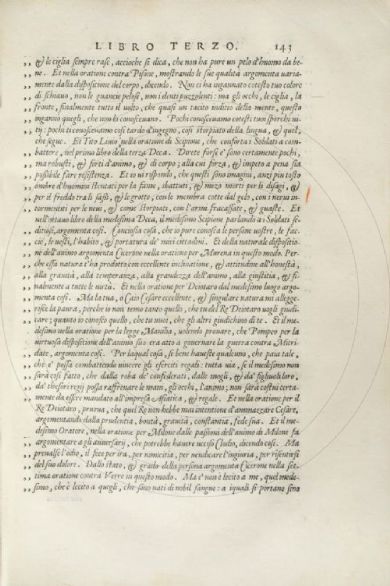 LIBRO TERZO. 143
,, & le ciglia sempre rase, accioche si dica, che non ha pure un pelo d'huomo da be-
,, ne. Et nella oratione contra Pisone, mostrando le sue qualità argomenta varia-
,, mente dalla dispositione del corpo, dicendo. Non ci ha ingannato cotesto tuo colore
,, di schiauo, non le guancie pelose, non i denti puzzolenti: ma gli occhi, le ciglia, la
,, fronte, finalmente tutto il uolto, che quasi un tacito inditio della mente, questo
,, inganno quegli, che non ti conosceuano. Pochi conosceuano cotesti tuoi sporchi ui-
,, tij: pochi ti conosceuano così tardo d'ingegno, così storpiato della lingua, & quel,
,, che segue. Et Tito Liuio nella oratione di Scipione, che conforta i Soldati a com-
,, battere, nel primo libro della terza Deca. Direte forsi e' sono certamente pochi,
,, ma robusti, & forti d'animo, & di corpo; alla cui forza, & impeto a pena sia
,, possibile fare resistenza. Et io ui rispondo, che questi sono imagini, anzi piu tosto
,, ombre d'huomini stentati per la fame, sbattuti, & mezo morti per li disagi, &
,, per il freddo tra li sassi, & le grotte, con le membra cotte dal gelo, con i nerui in-
,, tormentiti per le neui, & come storpiati, con l'arme fracassate, & guaste. Et
nell'ottauo libro della medesima Deca, il medesimo Scipione parlando a' Soldati se-
,, ditiosi, argomenta così. Conciosia cosa, che io pure conosca le persone uostre, le fac-
,, cie, le uesti, l'habito, & portatura de' miei cittadini. Et della naturale dispositio-
ne dell'animo argomenta Cicerone nella oratione per Murena in questo modo. Per-
,, che essa natura t'ha prodotto con eccellente inclinatione, & attitudine all'honestà,
,, alla grauità, alla temperanza, alla grandezza dell'animo, alla giustitia, & fi-
,, nalmente a tutte le uertù. Et nella oratione per Deiotaro dal medesimo luogo argo-
,, menta così. Ma la tua, o Caio Cesare eccellente, & singolare natura mi allegge-
,, risce la paura, perche io non temo tanto quello, che tu del Re Deiotaro uogli giudi-
,, care; quanto io conosco quello, che tu uuoi, che gli altri giudichino di te. Et il me-
desimo nella oratione per la legge Manilia, uolendo prouare, che Pompeo per la
uirtuosa dispositione dell'animo suo era atto a gouernar la guerra contra Mitri-
,, date, argomenta così. Per laqual cosa, se bene hauesse qualcuno, che paia tale,
,, che e' possa combattendo uincere gli eserciti regali: tutta uia, se il medesimo non
,, sarà così fatto, che dalla roba de' confederati, dalle mogli, & da' figliuoli loro,
,, da' thesori regij possa raffrenare le mani, gli occhi, l'animo; non sarà costui certa-
,, mente da essere mandato all'impresa Asiatica, & regale. Et nella oratione per il
Re Deiotaro, pruoua, che quel Re non hebbe mai intentione d'ammazzare Cesare,
argomentando dalla prudentia, bontà, grauità, constantia, fede sua. Et il me-
desimo Oratore, nella oratione per Milone dalle passioni dell'animo di Milone fa
argomentare a gli auersarij, che potrebbe hauere ucciso Clodio, dicendo così. Ma
,, preualse l'odio, il fece per ira, per nemicitia, per uendicare l'ingiuria, per risentirsi
,, del suo dolore. Dallo stato, & grado della persona argomenta Cicerone nella set-
,, tima oratione contra Verre in questo modo. Ma e' non è lecito a me, quel mede-
,, simo, che è lecito a quegli, che sono nati di nobil sangue: a i quali si portano sino